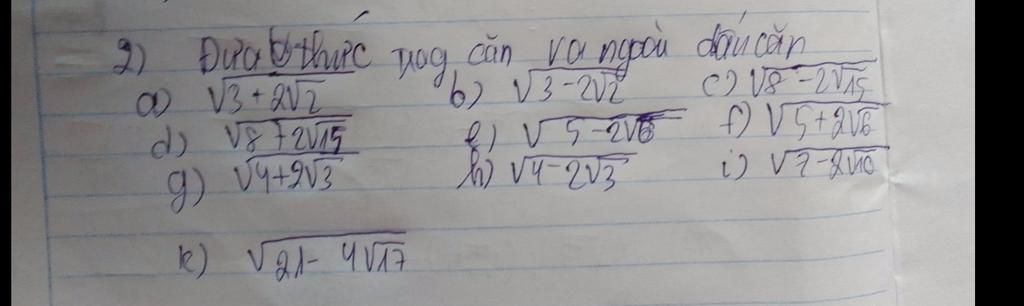 2) Đưa b thức trog căn ra ngoài dấu căn
a) √3+2√2 b) √3-2√2 c) √8-2√15
d) √8+2√15 e) √5-2√6 f) √5+2√6
g) √4+2√3 h) √4-2√3 i) √7-2√10
k) √21-4√17